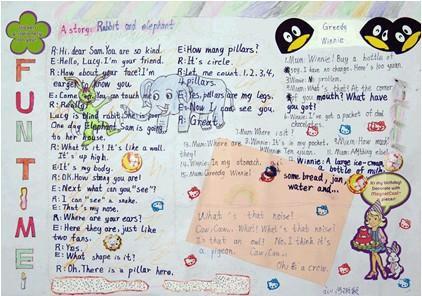 FUN TIME!
A story: Rabbit and elephant
R: Hi, dear Sam. You are so kind.
E: Hello, Lucy. I'm your friend.
R: How about your face? I'm
E: Come You can touch
R: Really?
Lucy is blind rabbit. She is
One day Elephant Sam is going
to her house.
R: What's it? It's like a wall.
It's up high.
E: It's my body.
R: Oh. How strong you are!
E: Next what can you "see"?
R: I can "see" a snake.
E: That's my nose.
R: Where are your ears?
E: Here they are, just like
two fans.
R: Yes.
E: What shape is it?
R: Oh. There is a pillar here.
E: How many pillars?
R: It's circle.
R: Let me count. 1.2.3.4,
4 pillars.
E: Yes, pillars are my legs.
E: Now I can see you.
R: Great.
Greedy
Winnie
1. Mum: Winnie! Buy a bottle of
I have no change. Here's
Winnie: No problem.
Mum: What's that! At the corner
of your mouth? What have
you got?
Winnie: I've got a packet of
chocolates.
Mum: Where is it?
Winnie: It's in my pocket.
Mum: How many
Winnie: Ten yuan.
Mum: Anything else?
Winnie: In my stomach.
Mum: Greedy Winnie!
Winnie: A large ice-cream,
a bottle of milk,
some bread, jam
water and...
What's that noise?
Caw, Caw... What! What's that noise?
Is that an owl? No. I think it's
a pigeon. Caw, Caw...
Oh! It's a crow.